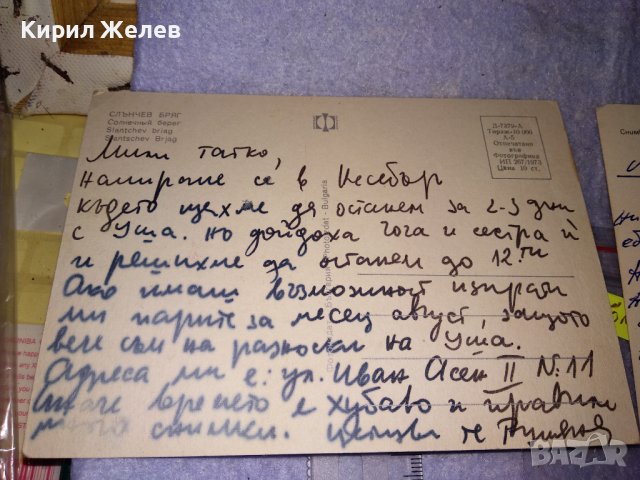 Кирил Желев
СЛЪНЧЕВ БРЯГ
Солнечный берег
Slantchev briag
Slantschev Brjag
Д-7279-А
Тираж-10 000
А-5
Отпечатано
във
Фотографика
ИП 267/1973
Цена 10 ст.
Мили татко,
Намираме се в Несебър
където щяхме да останем за 2-3 дни
с Уша. Но дойдоха Гога и сестра ѝ
и решихме да останем до 12.ти
Ако имаш възможност изпрати
ми парите за месец август, защото
вече съм на разноски на Уша.
Адреса ми е: ул. Иван Асен II №:11
Иначе времето е хубаво и правим
много снимки. Целува те
Bulgaria
bazar